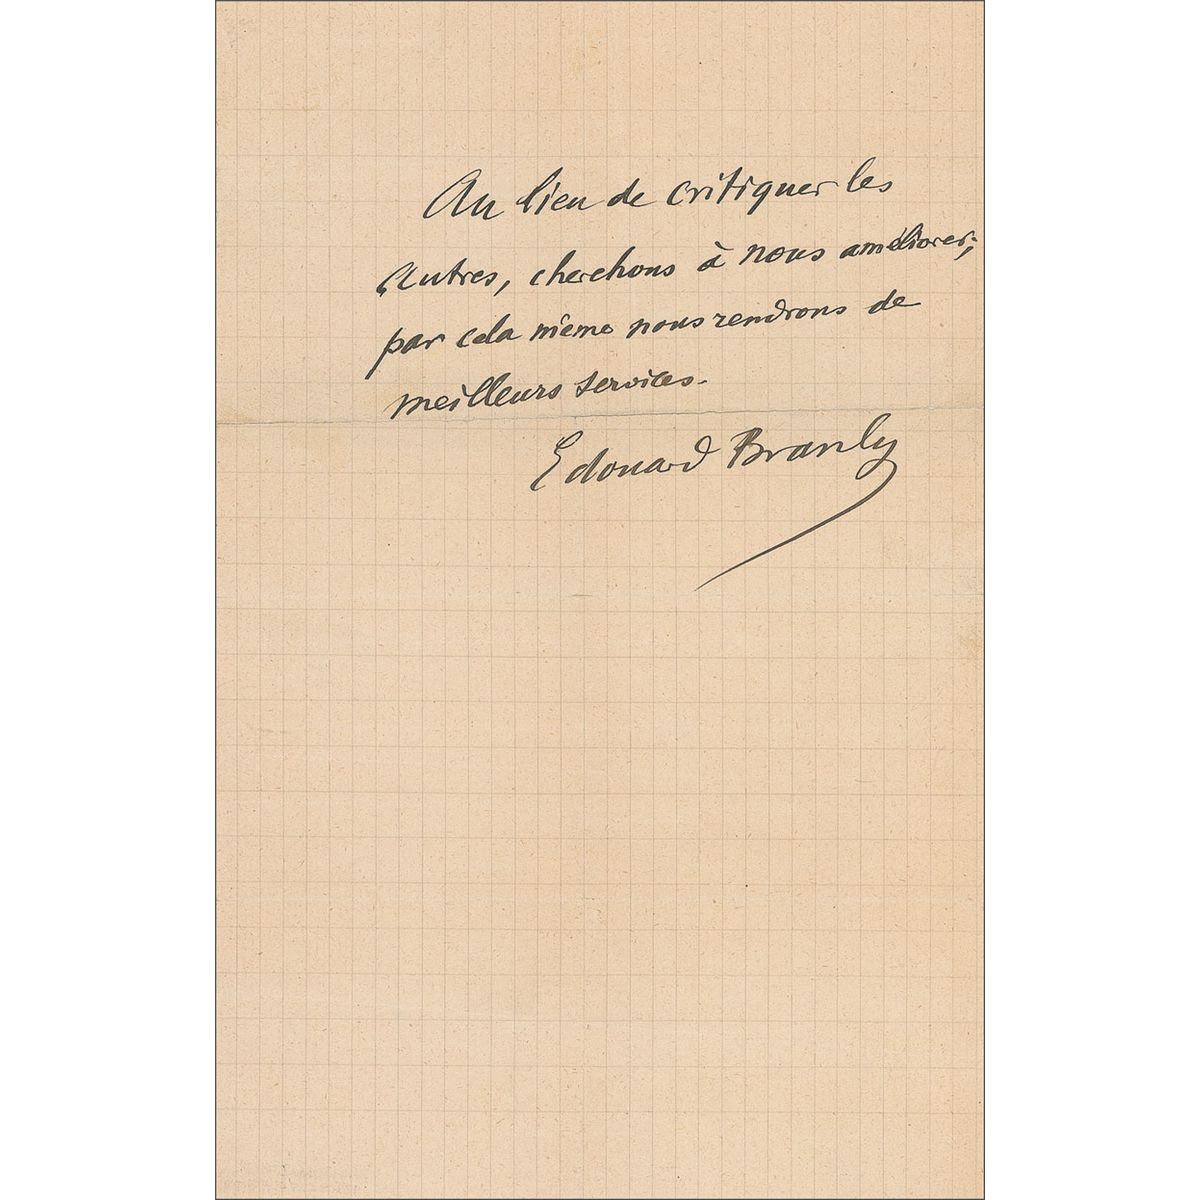 Au lieu de critiquer les
autres, cherchons à nous améliorer;
par cela même nous rendrons de
meilleurs services.
Edouard Branly